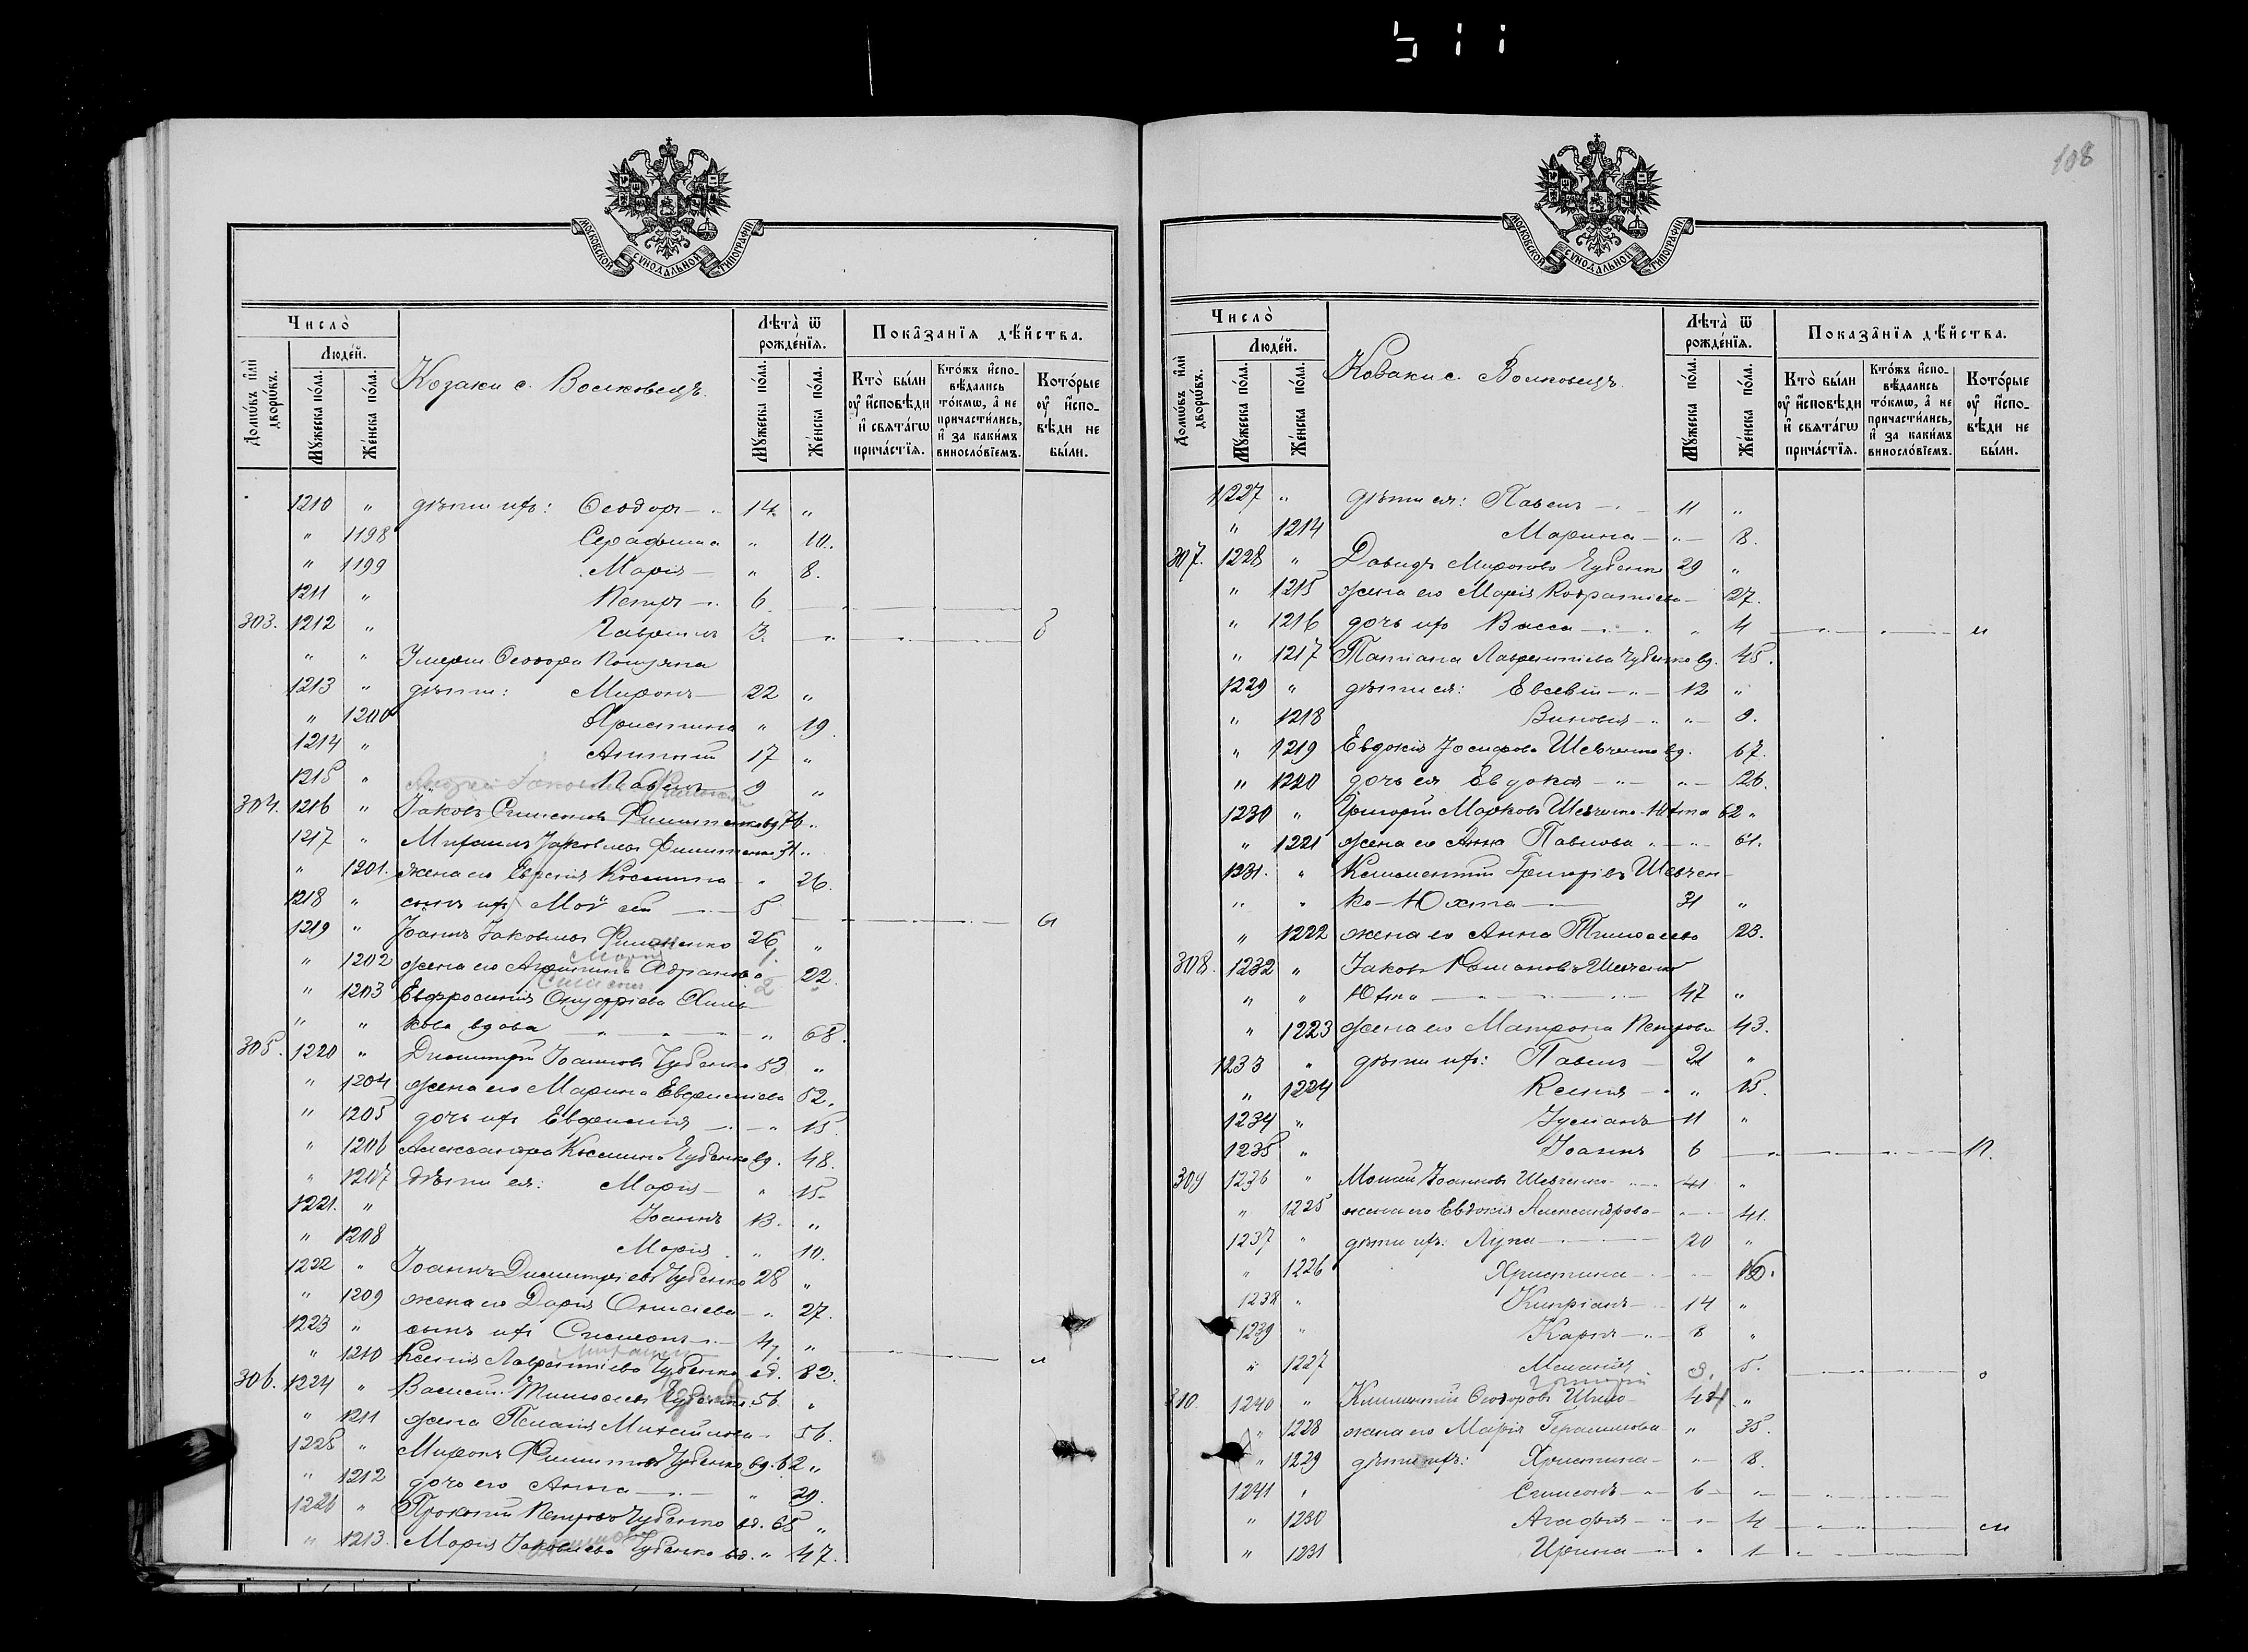 108
МОСКОВСКОЙ СѴНОДАЛЬНОЙ ТИПОГРАФІИ.
Число̀
Люде́й.
Домѡ́въ и҆лѝ дворѡ́въ.
Мꙋ́жеска по́ла.
Же́нска по́ла.
Козаки с. Волковецъ.
Лѣта̀ ѿ рожде́нїѧ.
Мꙋ́жеска по́ла.
Же́нска по́ла.
Показа̂нїѧ дѣ́йства.
Кто̀ бы́ли оу҆ и҆сповѣди и҆ свѧта́гѡ прича́стїѧ.
Кто́жъ и҆спо-вѣдались то́кмѡ, а҆ не причасти́лись, и҆ за каки́мъ винослóвїемъ.
Кото́рые оу҆ и҆спо-вѣди не бы́ли.
1210 " дѣти ихъ: Ѳеодоръ 14. "
" 1198 Серафима " 10.
" 1199 Марія " 8.
1211 " Петръ 6. "
303. 1212 " Гавріилъ 3. "
" " Умерш. Ѳеодора
1213 " дѣти: Миронъ 22 "
" 1200 Христина " 19.
1214 " 17 "
1215 " Павелъ 9 "
304. 1216 " Іаковъ Симеоновъ вд. 76 "
1217 " Михаилъ Іаковлевъ 31 "
" 1201. жена его Космина " 26.
1218 " сынъ ихъ Моѵсей 5
1219 " Іоаннъ Іаковлевъ 26 "
" 1202 жена его 22.
" 1203 Евфросинія Онуфріева
" " кова вдова " 68.
305. 1220 " Димитрій Іоанновъ Чубенко 53 "
" 1204 жена его Марина 52.
" 1205 дочь ихъ Евфимія " 15.
" 1206 Александра Космина Чубенко вд. 48.
" 1207 Дѣти ея: Марія " 15
1221. " Іоаннъ 13. "
" 1208 Марія " 10.
1222 " Іоаннъ Димитріевъ Чубенко 28 "
" 1209 жена его Дарія " 27.
1223 " сынъ ихъ Симеонъ 4 "
" 1210 Ксенія Лаврентіева Чубенко вд. 82.
306. 1224 " Василій Тимоѳеевъ Чубенко 56 "
" 1211 жена Пелагія 56.
1225 " Миронъ Филипповъ Чубенко вд. 62 "
" 1212 дочь его Анна " 29.
1226 " Прокопій Петровъ Чубенко вд. 65 "
" 1213. Марія Іаковлева Чубенко вд. " 47.
МОСКОВСКОЙ СѴНОДАЛЬНОЙ ТИПОГРАФІИ.
Число̀
Люде́й.
Домѡ́въ и҆лѝ дворѡ́въ.
Мꙋ́жеска по́ла.
Же́нска по́ла.
Козаки с. Волковецъ.
Лѣта̀ ѿ рожде́нїѧ.
Мꙋ́жеска по́ла.
Же́нска по́ла.
Показа̂нїѧ дѣ́йства.
Кто̀ бы́ли оу҆ и҆сповѣди и҆ свѧта́гѡ прича́стїѧ.
Кто́жъ и҆спо-вѣдались то́кмѡ, а҆ не причасти́лись, и҆ за каки́мъ винослóвїемъ.
Кото́рые оу҆ и҆спо-вѣди не бы́ли.
1227 " дѣти ея: Павелъ 11 "
" 1214 Марина " 8.
307. 1228 " Давидъ Мироновъ Чубенко 29 "
" 1215 жена его Марія 27.
" 1216 дочь ихъ Васса " 4
" 1217 Татіана Лаврентіева Чубенко вд. 45.
1229 " дѣти ея: Евсевій 12 "
" 1218 " 9.
" 1219 Евдокія Іосифова Шевченко вд. 67.
" 1220 дочь ея Евдокія " 26.
1230 " Григорій Марковъ Шевченко-Юхта 62 "
" 1221 жена его Анна Павлова " 61.
1231. " Климентій Григорьевъ Шевчен-
" " ко-Юхта 31 "
" 1222 жена его Анна Тимоѳеева 23.
308. 1232 " Іаковъ Романовъ Шевченко
" " Юхта 47 "
" 1223 жена его Матрона Петрова 43.
1233 " дѣти ихъ: Павелъ 21 "
" 1224 Ксенія " 15.
1234 " Іуліанъ 11 "
1235 " Іоаннъ 6
309 1236 " Іоанновъ Шевченко 41 "
" 1225 жена его Евдокія Александрова " 41.
1237 " дѣти ихъ: Лупа 20 "
" 1226 Христина
1238 " Кипріанъ 14 "
1239 " Карпъ 8 "
" 1227 Меланія 5.
310. 1240 " Климентій Ѳеодоровъ "
" 1228 жена его Марія Герасимова " 35.
" 1229 дѣти ихъ: Христина " 8.
1241 " Симеонъ 6 "
" 1230 Агафія " 4
" 1231 Ирина " 1